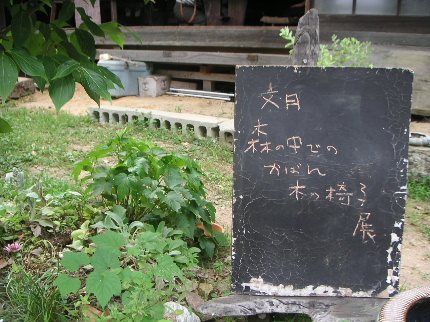 森の中での
かばん
木の椅子
展